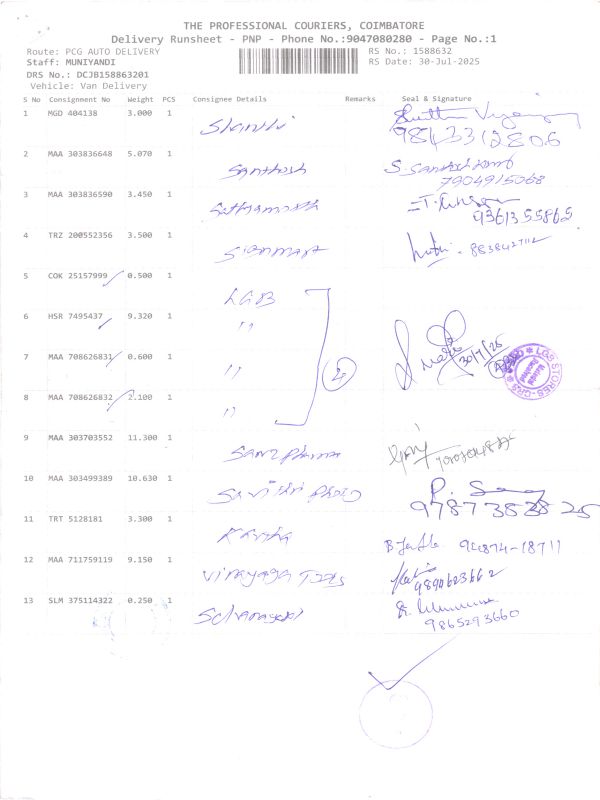 THE PROFESSIONAL COURIERS, COIMBATORE
Delivery Runsheet - PNP - Phone No.:9047080280 - Page No.:1
Route: PCG AUTO DELIVERY RS No.: 1588632
Staff: MUNIYANDI RS Date: 30-Jul-2025
DRS No.: DCJB158863201
Vehicle: Van Delivery
S No Consignment No Weight PCS Consignee Details Remarks Seal & Signature
1 MGD 404138 3.000 1 Shanthi
9843312806
2 MAA 303836648 5.070 1 Santhosh
7904915068
3 MAA 303836590 3.450 1 Sathyamoorth
9361355865
4 TRZ 200552356 3.500 1 Signmart
5 COK 25157999 0.500 1 LGB
6 HSR 7495437 9.320 1 "
7 MAA 708626831 0.600 1 "
30/7/25
8 MAA 708626832 2.100 1 "
4
LGB STORES-GRS
9 MAA 303703552 11.300 1 Sanz Pharma
10 MAA 303499389 10.630 1 Savithri Photo
11 TRT 5128181 3.300 1 Kavitha
90874-18711
12 MAA 711759119 9.150 1 Vinayaga Tools
9890623662
13 SLM 375114322 0.250 1
9865293660